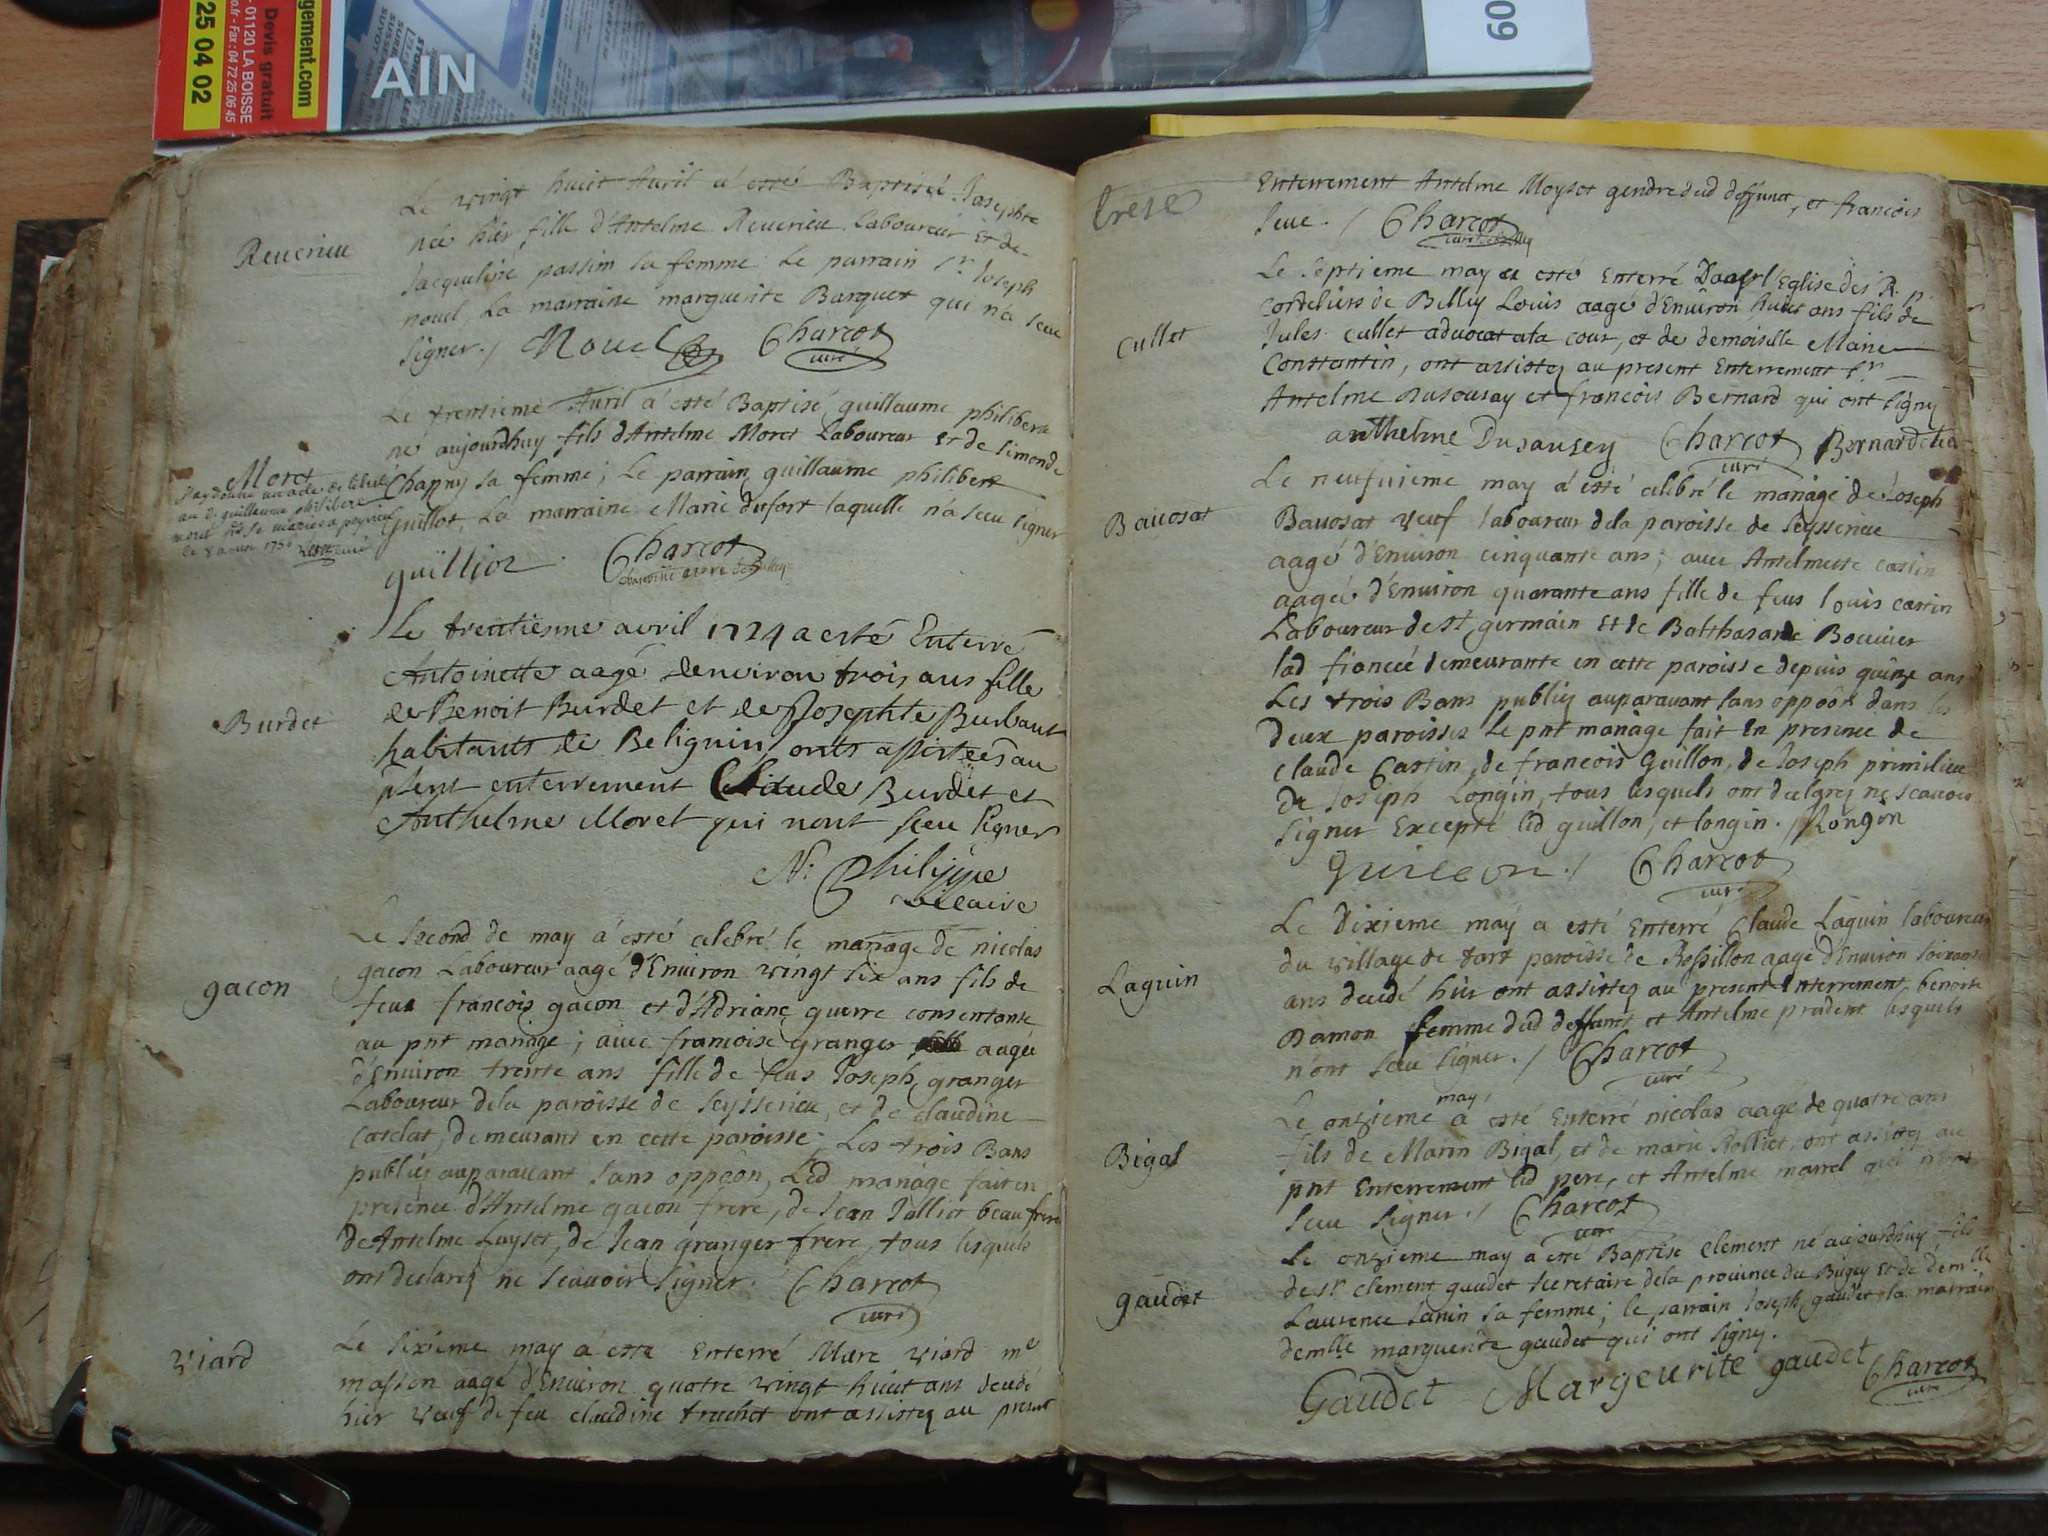 gement.com
Devis gratuit
01120 LA BOISSE
Fax : 04 72 25 06 45
25 04 02
AIN
09
Le vingt huit Auril a esté Baptiseé Josephte
Reuerieu
neé hier fille d'Antelme Reuerieu Laboureur et de
Jacqueline passim sa femme Le parrain sr. Joseph
nouel La marraine marguerite Barquet qui n'a sceu
signer./ Nouel Charcot
curé
Le trentieme Auril a esté Baptisé guillaume philibert
né aujourdhuy fils d'Antelme Moret Laboureur et de Simonde
Moret
Chappuy sa femme; Le parrain guillaume philibert
Guillot, La marraine Marie dufort laquelle n'a sceu signer
guillot Charcot
Le trentiesme avril 1724 a esté Enterré
Antoinette aagé denviron trois ans fille
Burdet
de Benoit Burdet et de Josephte Burbant
habitants de Belignin, onts assistées au
pšent enterrement Claude Burdet et
Anthelme Moret qui nont sceu signer
N: Philippe
vicaire
Le second de may a esté celebré le mariage de nicolas
gacon
gacon Laboureur aagé d'Enuiron vingt six ans fils de
feu francois gacon et d'Adriane guerre consentante
au pnt mariage; auec francoise granger aagee
d'Enuiron trente ans fille de feus Joseph granger
Laboureur dela paroisse de Seyssenieu, et de claudine
Catelat, demeurant en cette paroisse; Les trois Bans
publiez auparauant sans oppoön, Led mariage fait en
presence d'Antelme gacon frere, de Jean Jolliet beau frere
de Antelme Luyset, de Jean granger frere, tous lesquels
ont declarez ne scauoir signer. Charcot
curé
viard
Le sixieme may a esté Enterré Marc viard me
masson aagé d'Enuiron quatre vingt huict ans decedé
hier veuf de feu claudine trechet ont assistez au present
Enterrement Antelme Moyset gendre dud deffunct, et francois
seue./ Charcot
Le septieme may a esté Enterré Dans l'Eglise des R. p.
Cordeliers de Belley Louis aagé d'Enuiron huict ans fils de
Cullet
Jules cullet aduocat ala cour, et de demoiselle Marie
Constantin, ont assistez au present Enterrement sr
Antelme Dusousay et francois Bernard qui ont signez
anthelme Dusausey Charcot Bernard
curé
Le neufuieme may a esté celebré le mariage de Joseph
Bauosat
Bauosat veuf laboureur dela paroisse de Seyssenieu
aagé d'Enuiron cinquante ans; auec Antelmette castin
aageé d'Enuiron quarante ans fille de feus louis castin
Laboureur de st germain et de Balthasarde Bouuier
lad fianceé demeurante en cette paroisse depuis quinze ans
Les trois Bans publiez auparauant sans oppoön dans les
deux paroisses Le pnt mariage fait En presence de
claude Castin, de francois Guillon, de Joseph primilieu
de Joseph Longin, tous lesquels ont declarez ne scauoir
signer Excepté led guillon, et longin./ Longin
guilleon./ Charcot
curé
Le dixieme may a esté Enterré Claude Laguin laboureur
du village de tart paroisse de Rossillon aagé d'Enuiron soixante
Laguin
ans decedé hier ont assistez au present Enterrement benoite
Damon femme dud deffunct et Antelme prudent lesquels
n'ont sceu signer./ Charcot
curé
Le onzieme may a esté Enterré nicolas aagé de quatre ans
Bigal
fils de Marin Bigal, et de marie Rolliet, ont assistez au
pnt Enterrement led pere, et Antelme marrel qui n'ont
sceu signer./ Charcot
curé
Le onzieme may a esté Baptisé Clement né aujourdhuy fils
gaudet
de sr clement gaudet secretaire dela prouince du Bugey et de demlle
Laurence Janin sa femme; le parrain Joseph gaudet la marraine
demlle marguerite gaudet qui ont signez.
Gaudet Margeurite gaudet Charcot
curé